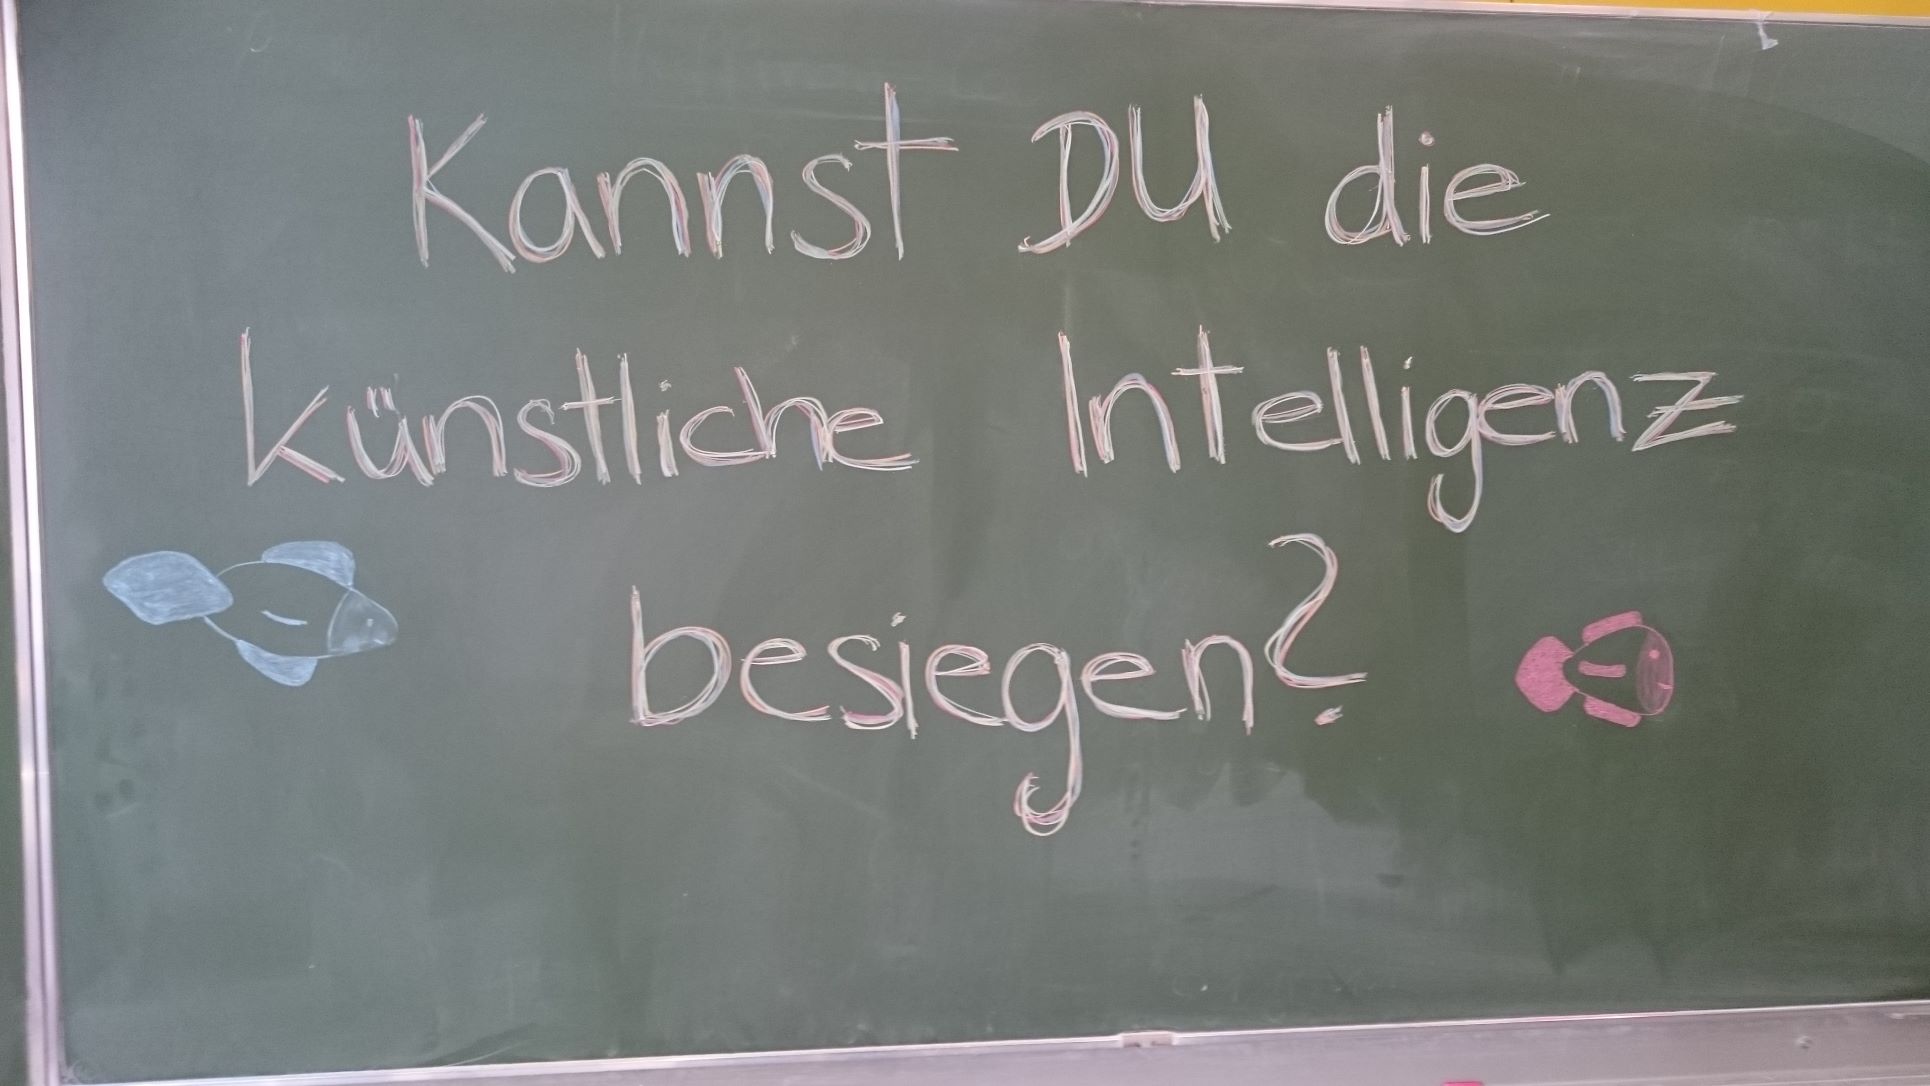 Kannst DU die
künstliche Intelligenz
besiegen?